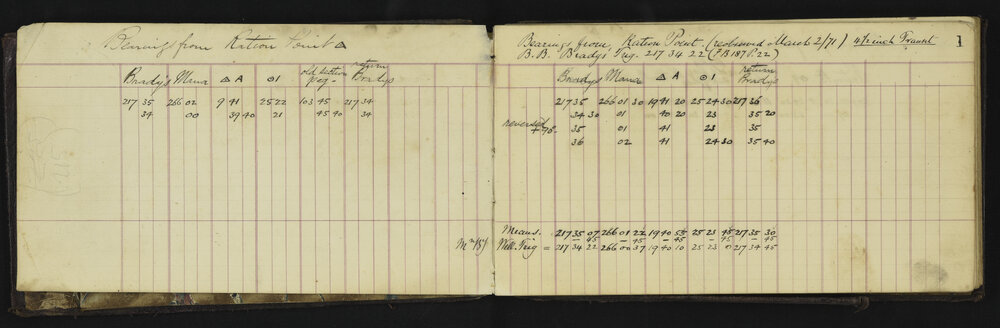 Bearings from Ration Point △
old section return
Bradys Mana △ A ⊙1 peg - Bradys
217 35 266 02 9 41 25 22 103 45 217 34
34 00 39 40 21 45 40 34
Bearings from Ration Point (reobserved March 2/71) 4½ inch Transit 1
B. B. Bradys Trig. 217 34 22 (F B 187 P. 22)
return
Bradys Mana △ A ⊙1 Bradys
217 35 266 01 30 19 41 20 25 24 30 217 36
34 30 01 40 20 23 35 20
reversed
+ 98. 35 01 41 23 35
36 02 41 24 30 35 40
Means. 217 35 07 266 01 22 19 40 55 25 23 45 217 35 30
- 45 - 45 - 45 - 45 - 45
Well. Trig = 217 34 22 266 00 37 19 40 10 25 23 0 217 34 45